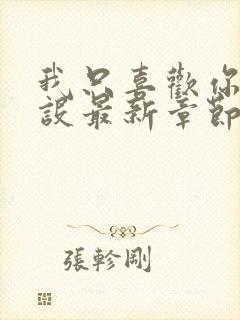 我只喜歡你
設最新章節
張軫剛